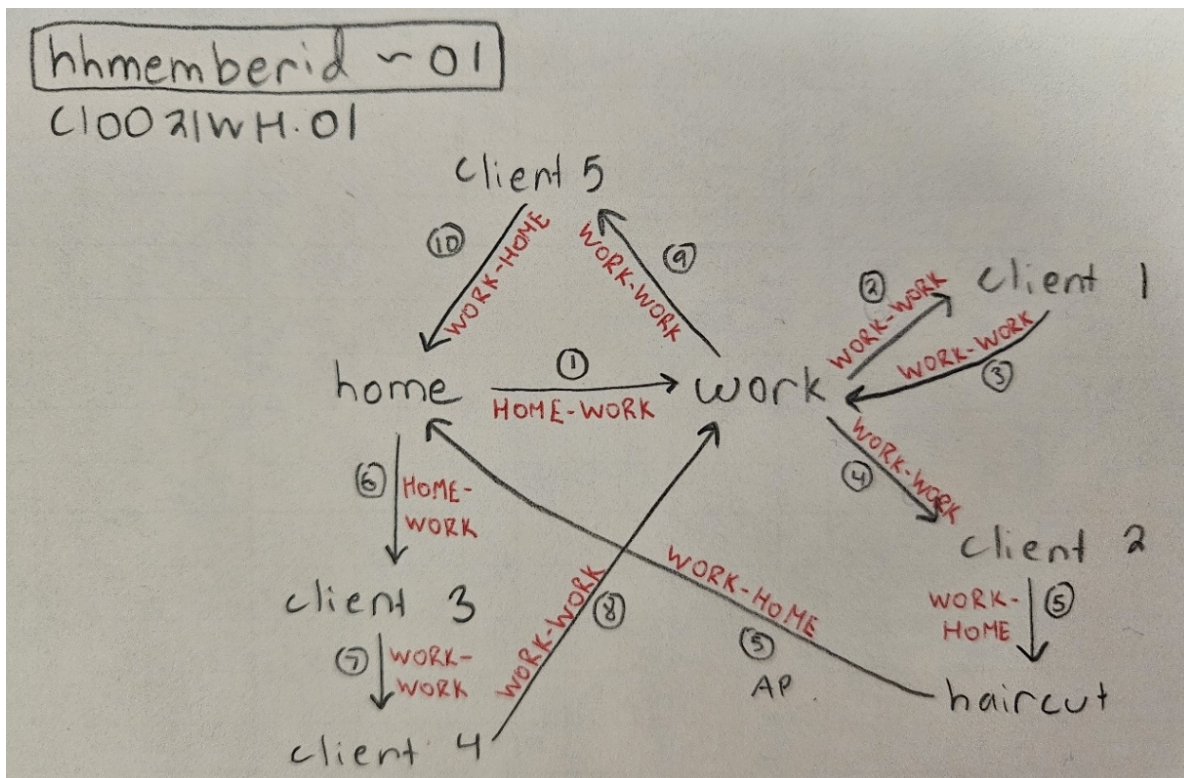 hhmemberid ~ 01
C10021WH.01
client 5
10
WORK-HOME
WORK-WORK
9
2
WORK-WORK
client 1
WORK-WORK
3
home
1
HOME-WORK
work
WORK-WORK
4
6
HOME-
WORK
client 2
WORK-
HOME
5
client 3
WORK-WORK
8
WORK-HOME
5
AP.
haircut
7
WORK-
WORK
client 4